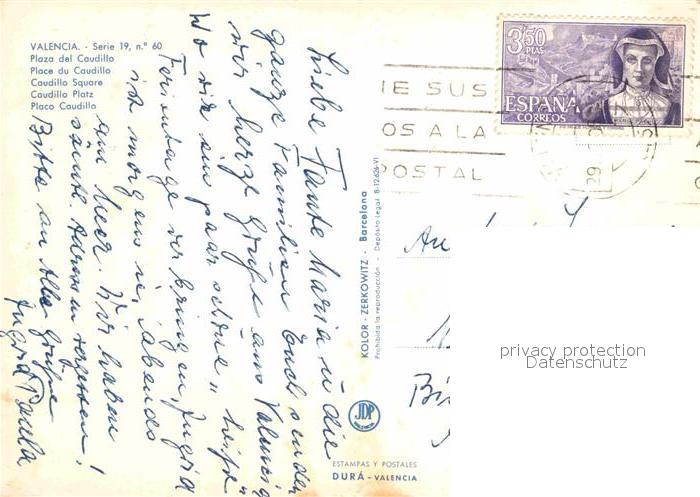 VALENCIA. - Serie 19, n.º 60
Plaza del Caudillo
Place du Caudillo
Caudillo Square
Caudillo Platz
Placo Caudillo
Liebe Tante Maria u die
ganze Familien Euch senden
wir herzl Grüße aus Valencia
Wo wir ein paar schöne „heiße"
Ferientage verbringen, Ingrid
ist morgens u. abends
am Meer. Wir haben
sämtl. Adressen vergessen!
Bitte an Alle Grüße
Ingrid Paula
3,50
PTAS
ESPAÑA
CORREOS
IE SUS
OS A LA
POSTAL
29
An
KOLOR - ZERKOWITZ - Barcelona
Prohibida la reproducción - Depósito Legal B-12626-VI
JDP
VALENCIA
ESTAMPAS Y POSTALES
DURÁ - VALENCIA
privacy protection
Datenschutz